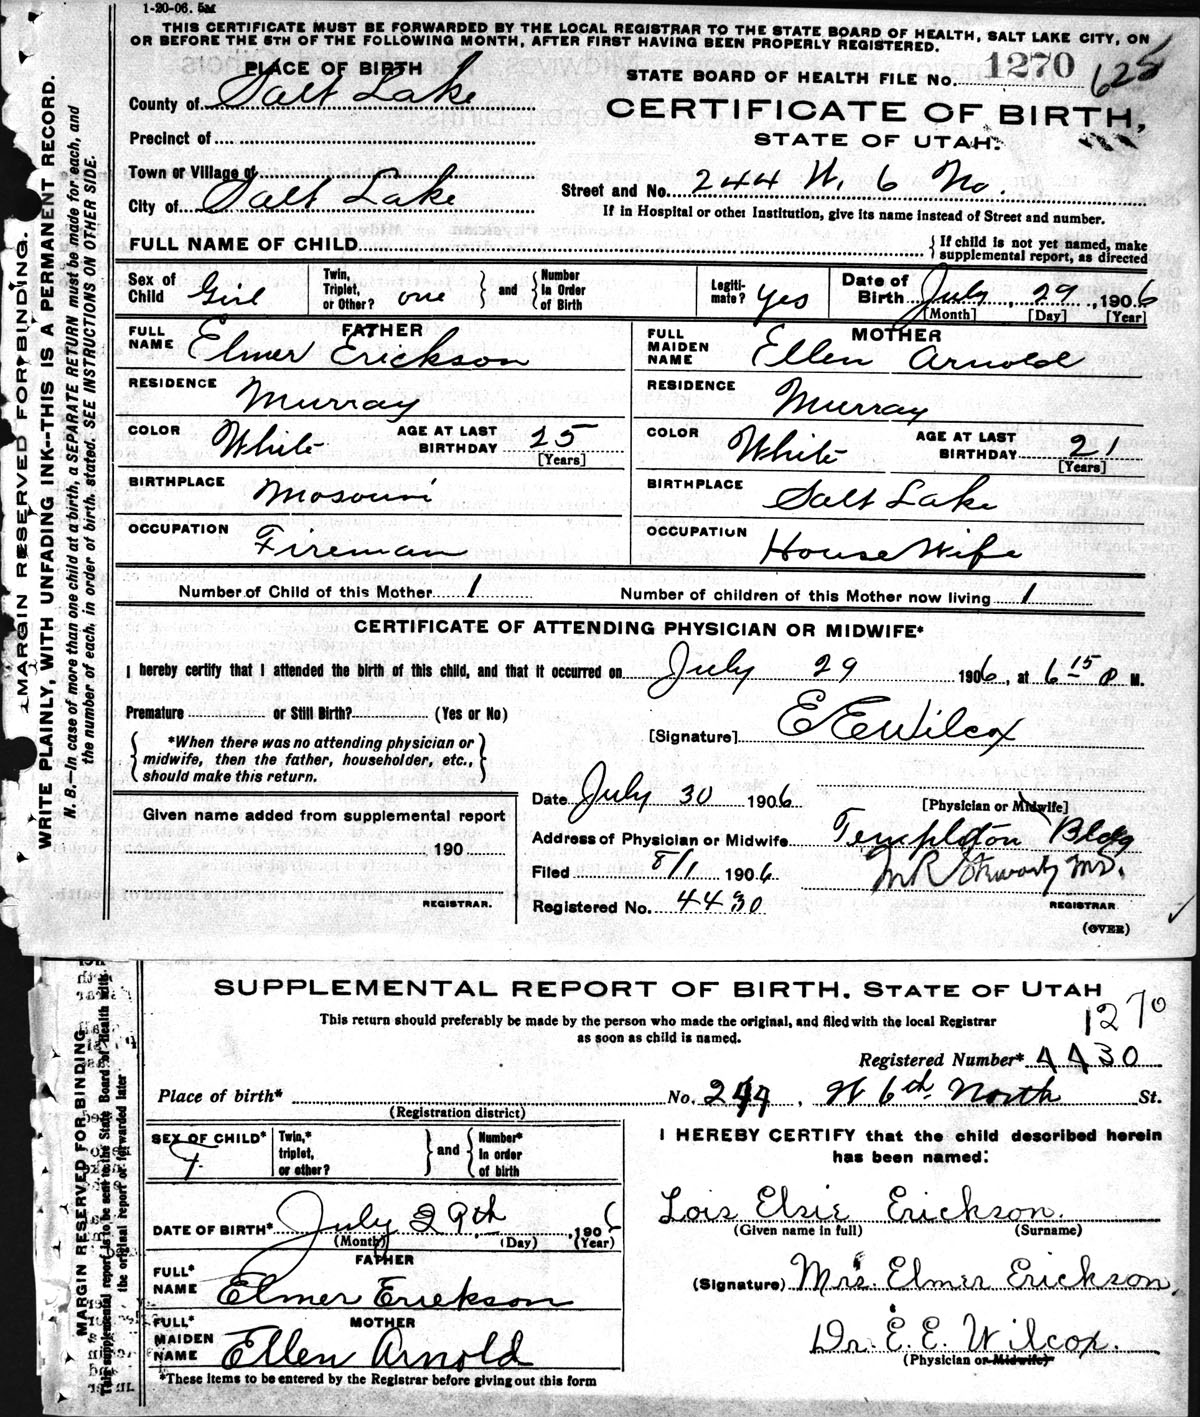 1-20-06. 5M
THIS CERTIFICATE MUST BE FORWARDED BY THE LOCAL REGISTRAR TO THE STATE BOARD OF HEALTH, SALT LAKE CITY, ON
OR BEFORE THE 5TH OF THE FOLLOWING MONTH, AFTER FIRST HAVING BEEN PROPERLY REGISTERED.
PLACE OF BIRTH
STATE BOARD OF HEALTH FILE No. 1270 625
County of Salt Lake
CERTIFICATE OF BIRTH,
STATE OF UTAH.
Precinct of
Town or Village of
Street and No. 244 W. 6 No.
City of Salt Lake
If in Hospital or other Institution, give its name instead of Street and number.
FULL NAME OF CHILD
If child is not yet named, make
supplemental report, as directed
Sex of Child Girl
Twin, Triplet, or Other? one
and Number In Order of Birth
Legiti-mate? yes
Date of Birth July, 29, 1906
[Month] [Day] [Year]
FATHER
FULL NAME Elmer Erickson
MOTHER
FULL MAIDEN NAME Ellen Arnold
RESIDENCE Murray
RESIDENCE Murray
COLOR White AGE AT LAST BIRTHDAY 25 [Years]
COLOR White AGE AT LAST BIRTHDAY 21 [Years]
BIRTHPLACE Mosouri
BIRTHPLACE Salt Lake
OCCUPATION Fireman
OCCUPATION House Wife
Number of Child of this Mother 1 Number of children of this Mother now living 1
CERTIFICATE OF ATTENDING PHYSICIAN OR MIDWIFE*
I hereby certify that I attended the birth of this child, and that it occurred on July 29 1906, at 6 15 P M.
Premature or Still Birth? (Yes or No)
[Signature] E E Wilcox
*When there was no attending physician or
midwife, then the father, householder, etc.,
should make this return.
Date July 30 1906 [Physician or Midwife]
Given name added from supplemental report
190
REGISTRAR.
Address of Physician or Midwife Templeton Bldg
Filed 8/1 1906 M.D.
Registered No. 4430 REGISTRAR
(OVER)
MARGIN RESERVED FOR BINDING.
WRITE PLAINLY, WITH UNFADING INK--THIS IS A PERMANENT RECORD.
N. B.—In case of more than one child at a birth, a SEPARATE RETURN must be made for each, and
the number of each, in order of birth, stated. SEE INSTRUCTIONS ON OTHER SIDE.
SUPPLEMENTAL REPORT OF BIRTH. STATE OF UTAH
1270
This return should preferably be made by the person who made the original, and filed with the local Registrar
as soon as child is named.
Registered Number* 4430
Place of birth* No. 244, W 6th North St.
(Registration district)
SEX OF CHILD* F
Twin,* triplet, or other?
and Number* In order of birth
I HEREBY CERTIFY that the child described herein
has been named:
Lois Elsie Erickson.
(Given name in full) (Surname)
DATE OF BIRTH* July 29th, 1906
(Month) (Day) (Year)
FATHER
FULL* NAME Elmer Erickson
(Signature) Mrs. Elmer Erickson,
MOTHER
FULL* MAIDEN NAME Ellen Arnold
Dr. E. E. Wilcox.
(Physician or Midwife)
*These items to be entered by the Registrar before giving out this form
MARGIN RESERVED FOR BINDING
This supplemental report is to be sent to the State Board of Health with
the original report or forwarded later